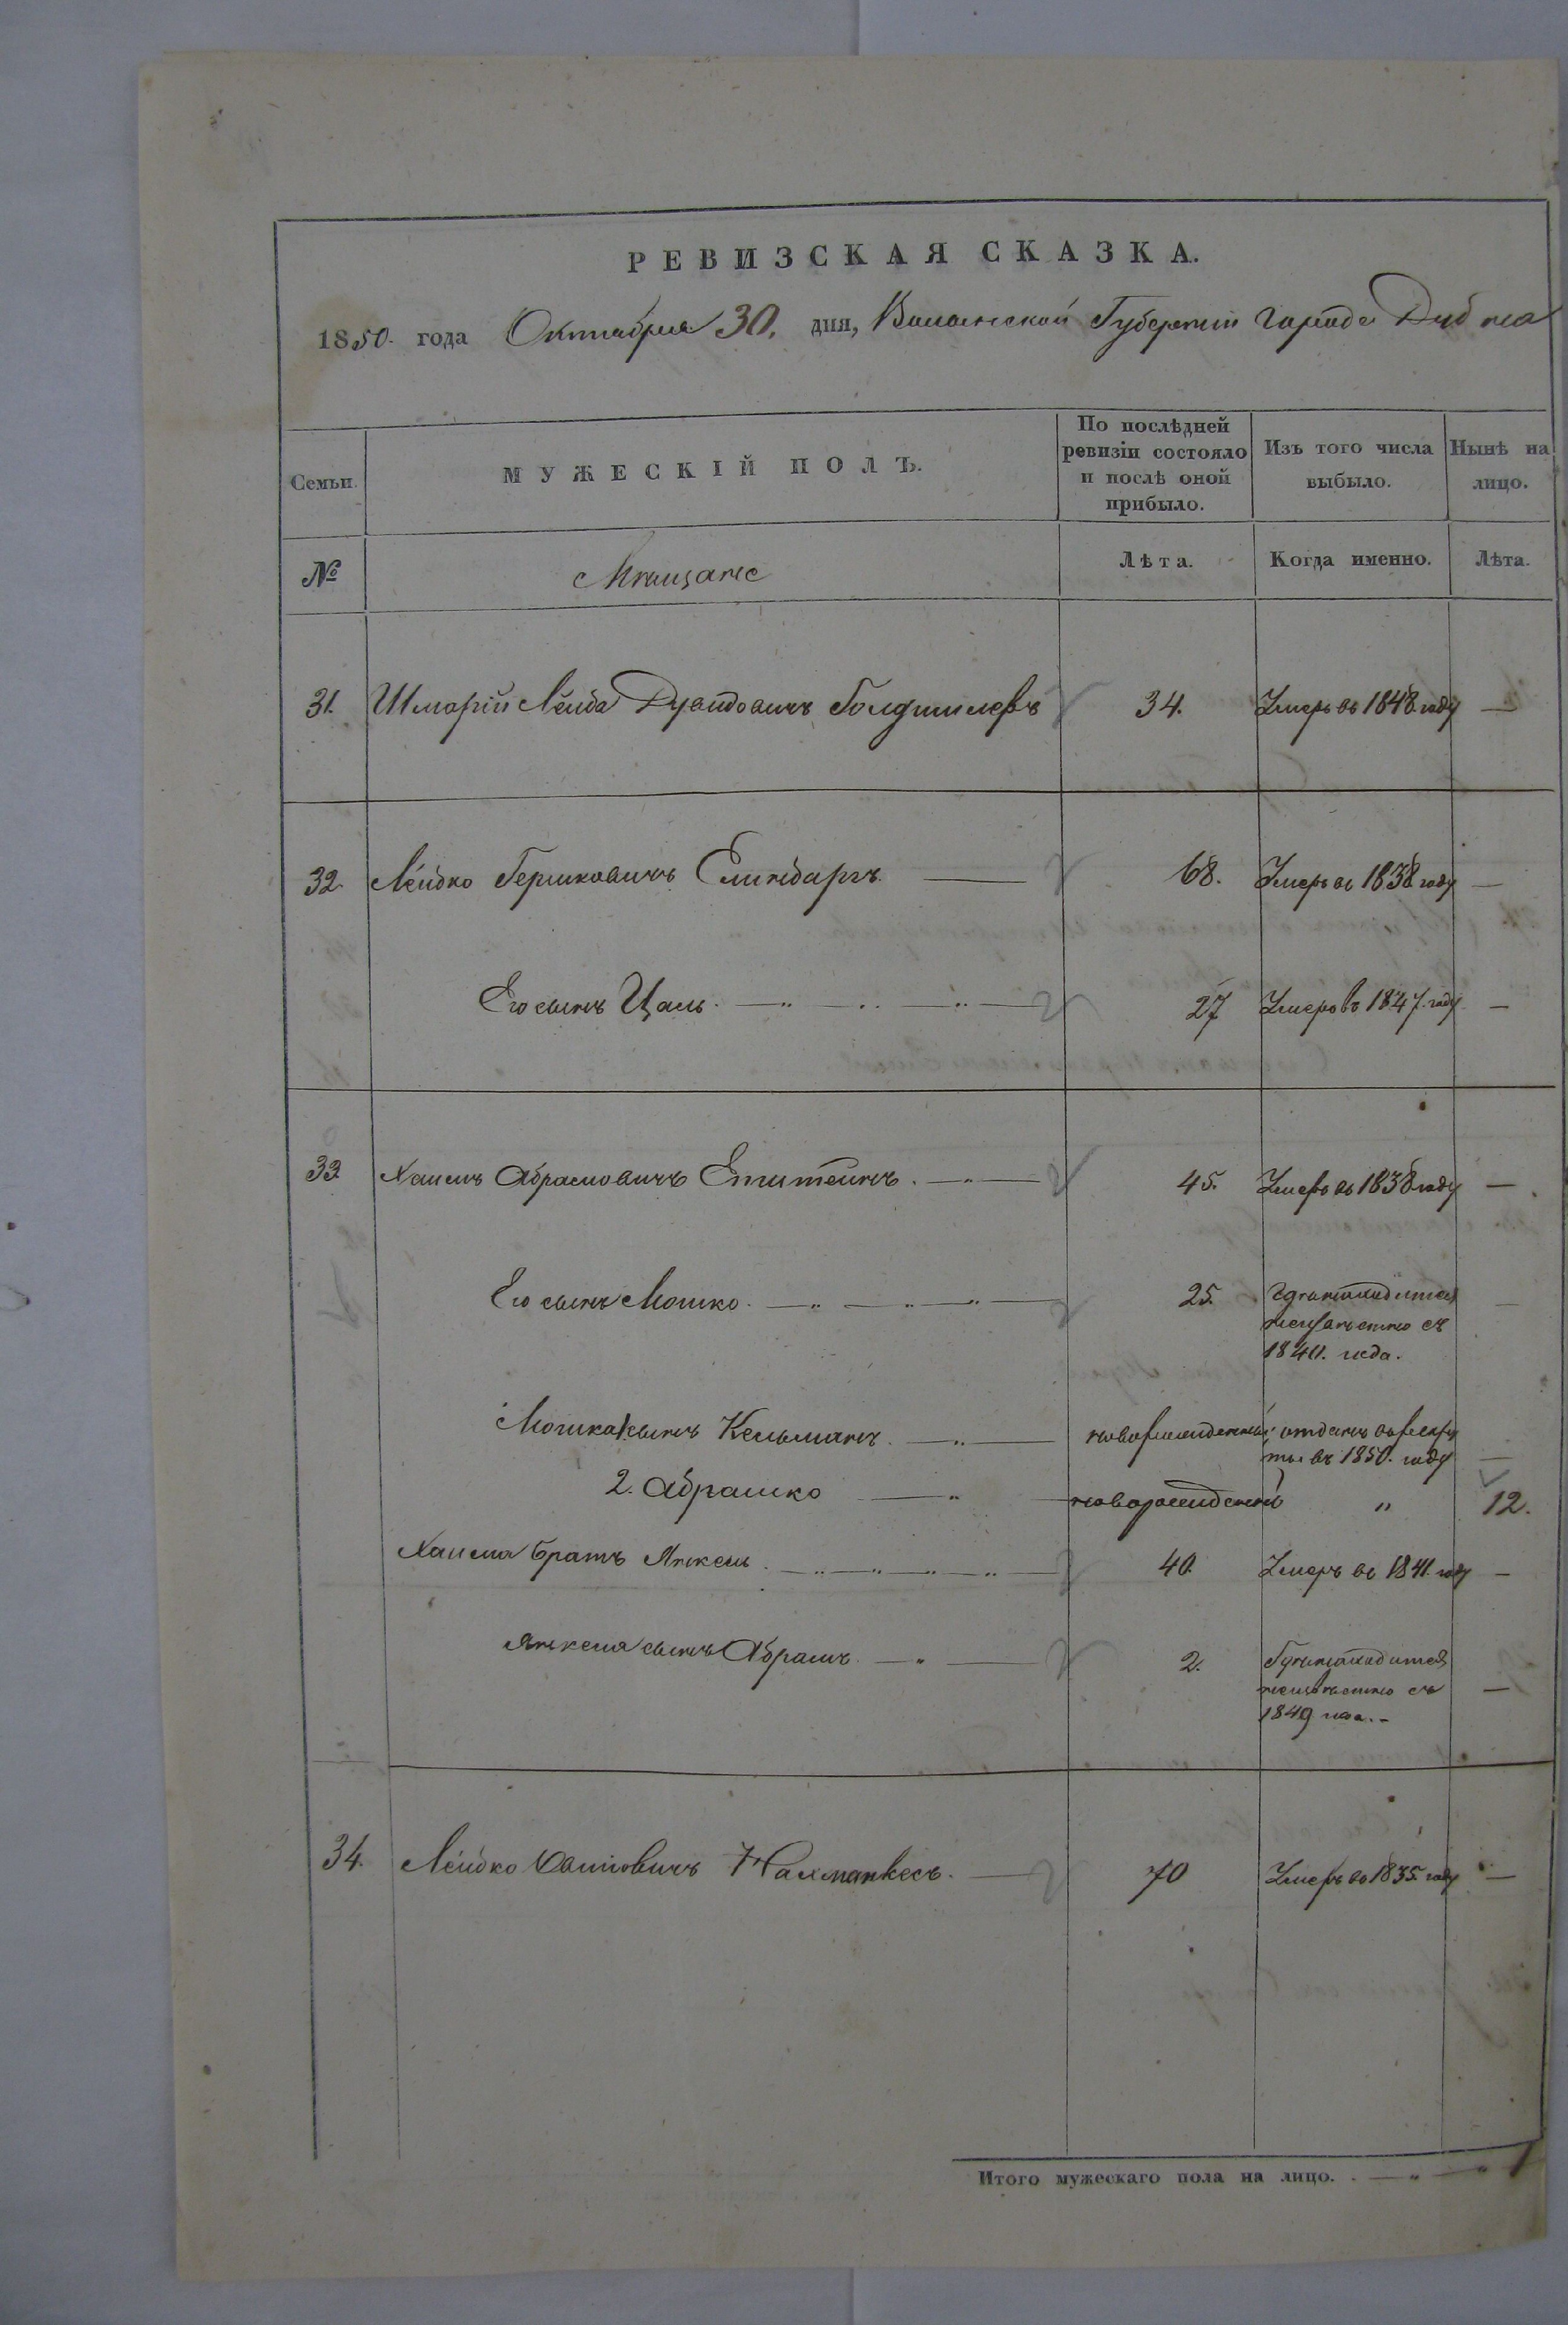 РЕВИЗСКАЯ СКАЗКА.
1850. года Октября 30. дня, Волынской Губернии города Дубна
Семьи.
МУЖЕСКІЙ ПОЛЪ.
По послѣдней ревизіи состояло и послѣ оной прибыло.
Изъ того числа выбыло.
Нынѣ на лицо.
№
Мещане
Лѣта.
Когда именно.
Лѣта.
31. Шмарій Лейба Дувидовичъ 34. Умеръ въ 1848. году —
32. Лейбко Гершковичъ Елинбаргъ. — 68. Умеръ въ 1838 году —
Его сынъ Цаль. — 27 Умеръ въ 1847. году —
33. Хаимъ Абрамовичъ Епштеинъ. — 45. Умеръ въ 1838 году —
Его сынъ Мошко. — 25. находится —
неизвестно съ
1840. года.
Мошка 1. сынъ Кельманъ. — новорожденный отданъ въ рекру
ты въ 1850. году —
2. Абрашко — новорожденный " 12.
Хаима братъ Янкель. — 40. Умеръ въ 1841. году —
Янкеля сынъ Абрамъ. — 2. находится
неизвестно съ —
1849 года. -
34. Лейбко — 70 Умеръ въ 1835. году —
Итого мужескаго пола на лицо. . — " — " 1